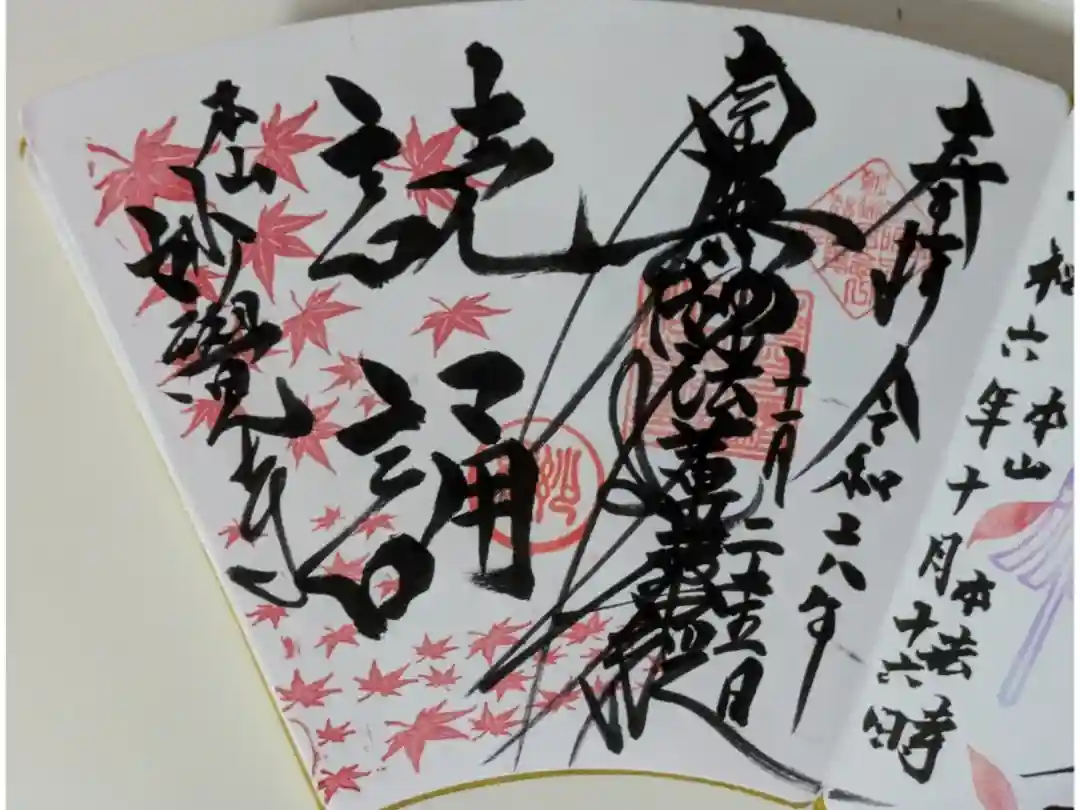 本山
本法寺
和六年十月十六日
奉拝 令和六年
十一月二十五日
南無妙法蓮華経
読誦
本山
妙覺寺